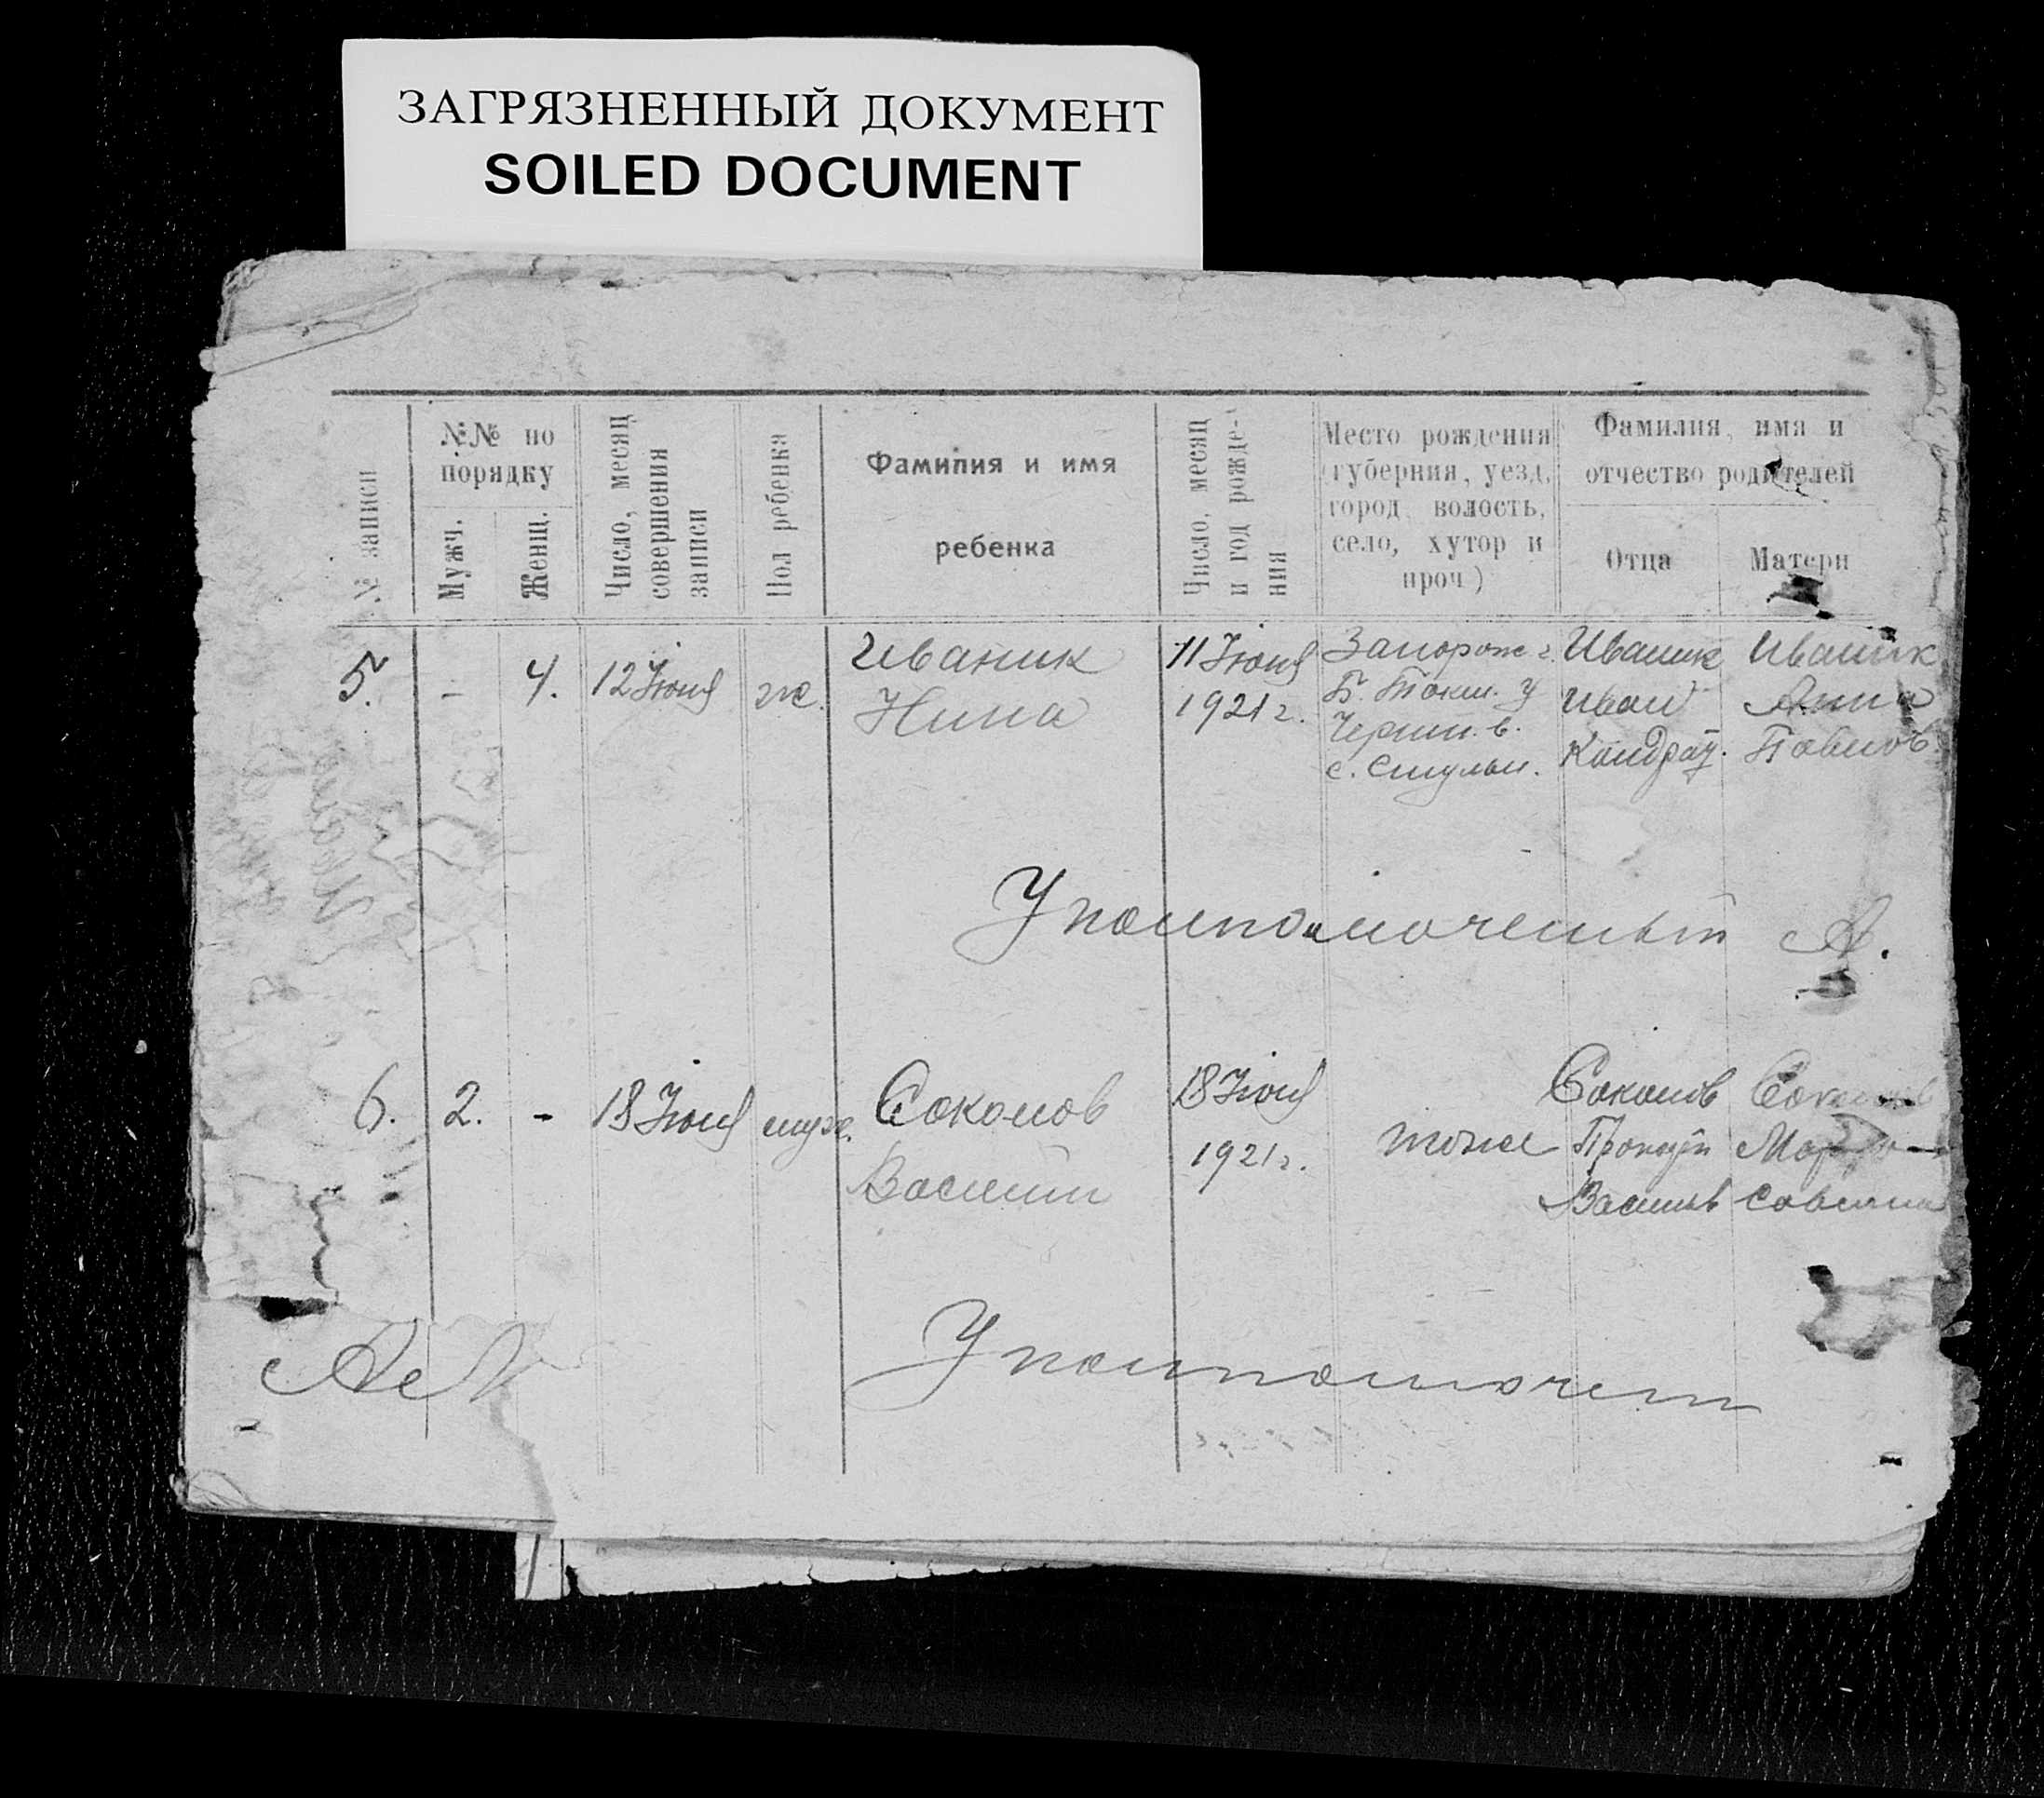 ЗАГРЯЗНЕННЫЙ ДОКУМЕНТ
SOILED DOCUMENT
№ записи
№№ по
порядку
Мужч.
Женщ.
Число, месяц
совершения
записи
Пол ребенка
Фамилия и имя
ребенка
Число, месяц
и год рожде-
ния
Место рождения
(губерния, уезд,
город, волость,
село, хутор и
проч.)
Фамилия, имя и
отчество родителей
Отца
Матери
5.
-
4.
12 Іюня
ж.
Иваник
Нина
11 Іюня
1921 г.
Запорож г.
Б. Токм. у
Черниг. в.
Иваник
Иван
Кондрат.
Иваник
Анна
Павлов.
Уполномоченый А.
6.
2.
-
18 Іюня
муж.
Соколов
Василий
18 Іюня
1921 г.
тоже
Соколов
Прокоп
Васильев
Соколов
Уполномочен